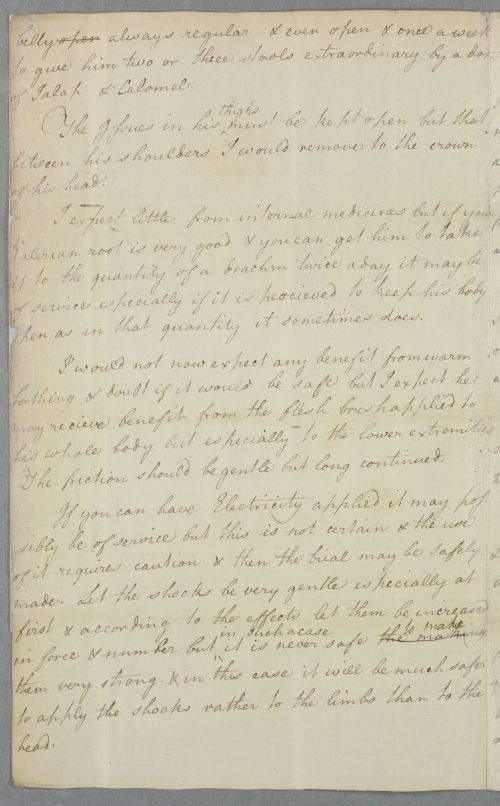 belly open always regular & even open & once a week
to give him two or three stools extraordinary by a dose
of Jalap & Calomel.
The Issues in his thighs must be kept open but that
between his shoulders I would remove to the crown
of his head.
I expect little from internal medicines but if your
Valerian root is very good & you can get him to take
it to the quantity of a drachm twice a day it may be
of service especially if it is percieved to keep his body
open as in that quantity it sometimes does.
I would not now expect any benefit from warm
bathing & doubt if it would be safe but I expect he
may recieve benefit from the flesh brush applied to
his whole body but especially to the lower extremities
The friction should be gentle but long continued.
If you can have Electricity applied it may pos
sibly be of service but this is not certain & the use
of it requires caution & then the trial may be safely
made. Let the shocks be very gentle especially at
first & according to the effects let them be increased
in force & number but in such a case it is never safe the making to make
them very strong. & in this case it will be much safer
to apply the shocks rather to the limbs than to the
head.